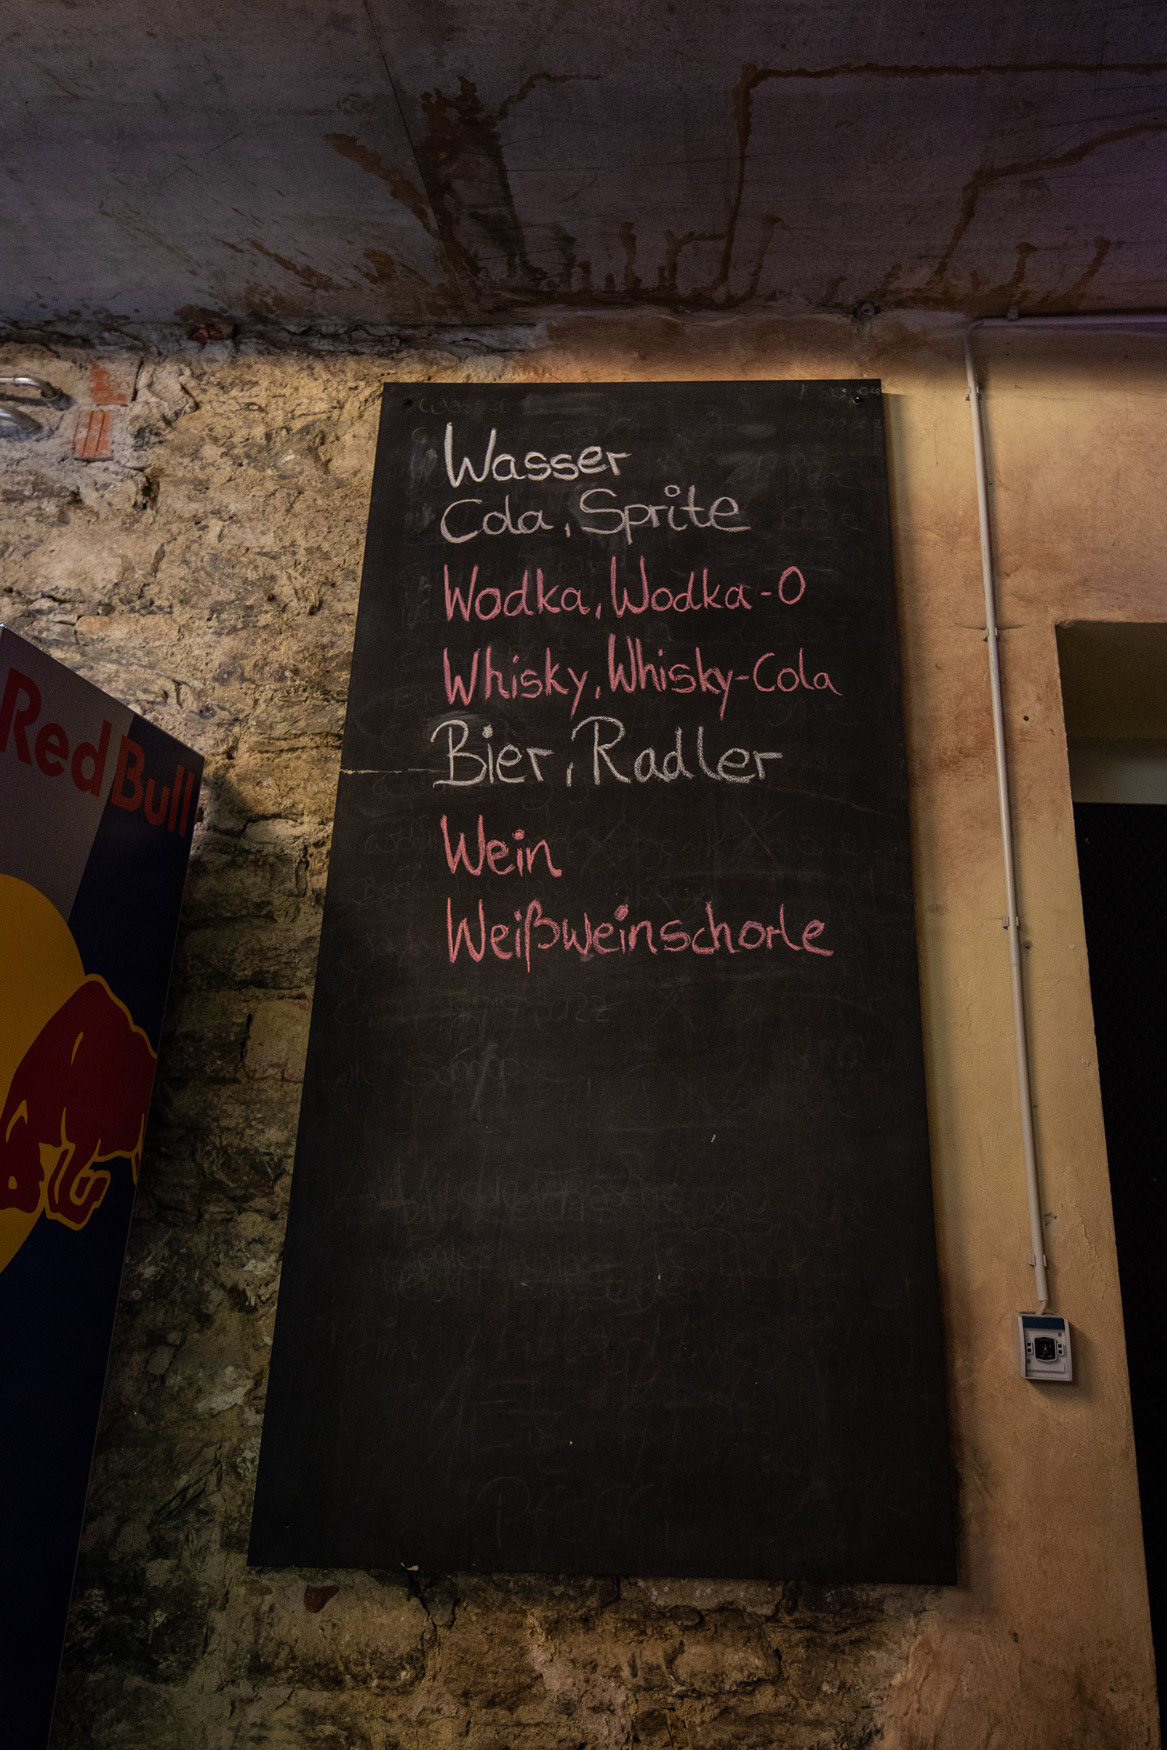 Wasser
Cola, Sprite
Wodka, Wodka-O
Whisky, Whisky-Cola
Bier, Radler
Wein
Weißweinschorle
Red Bull